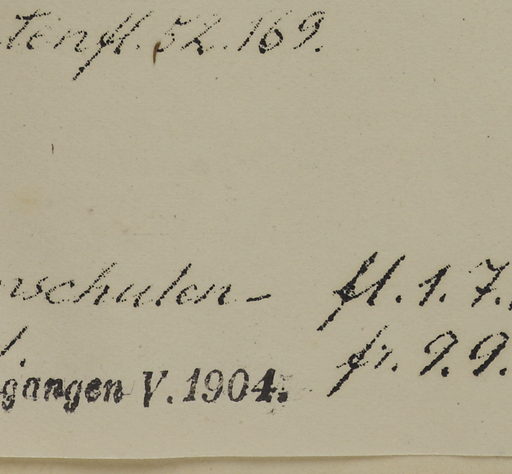 tenfl. 52. 169.
rschulen- fl. 1. 7.
fr. 9. 9.
gangen V. 1904.